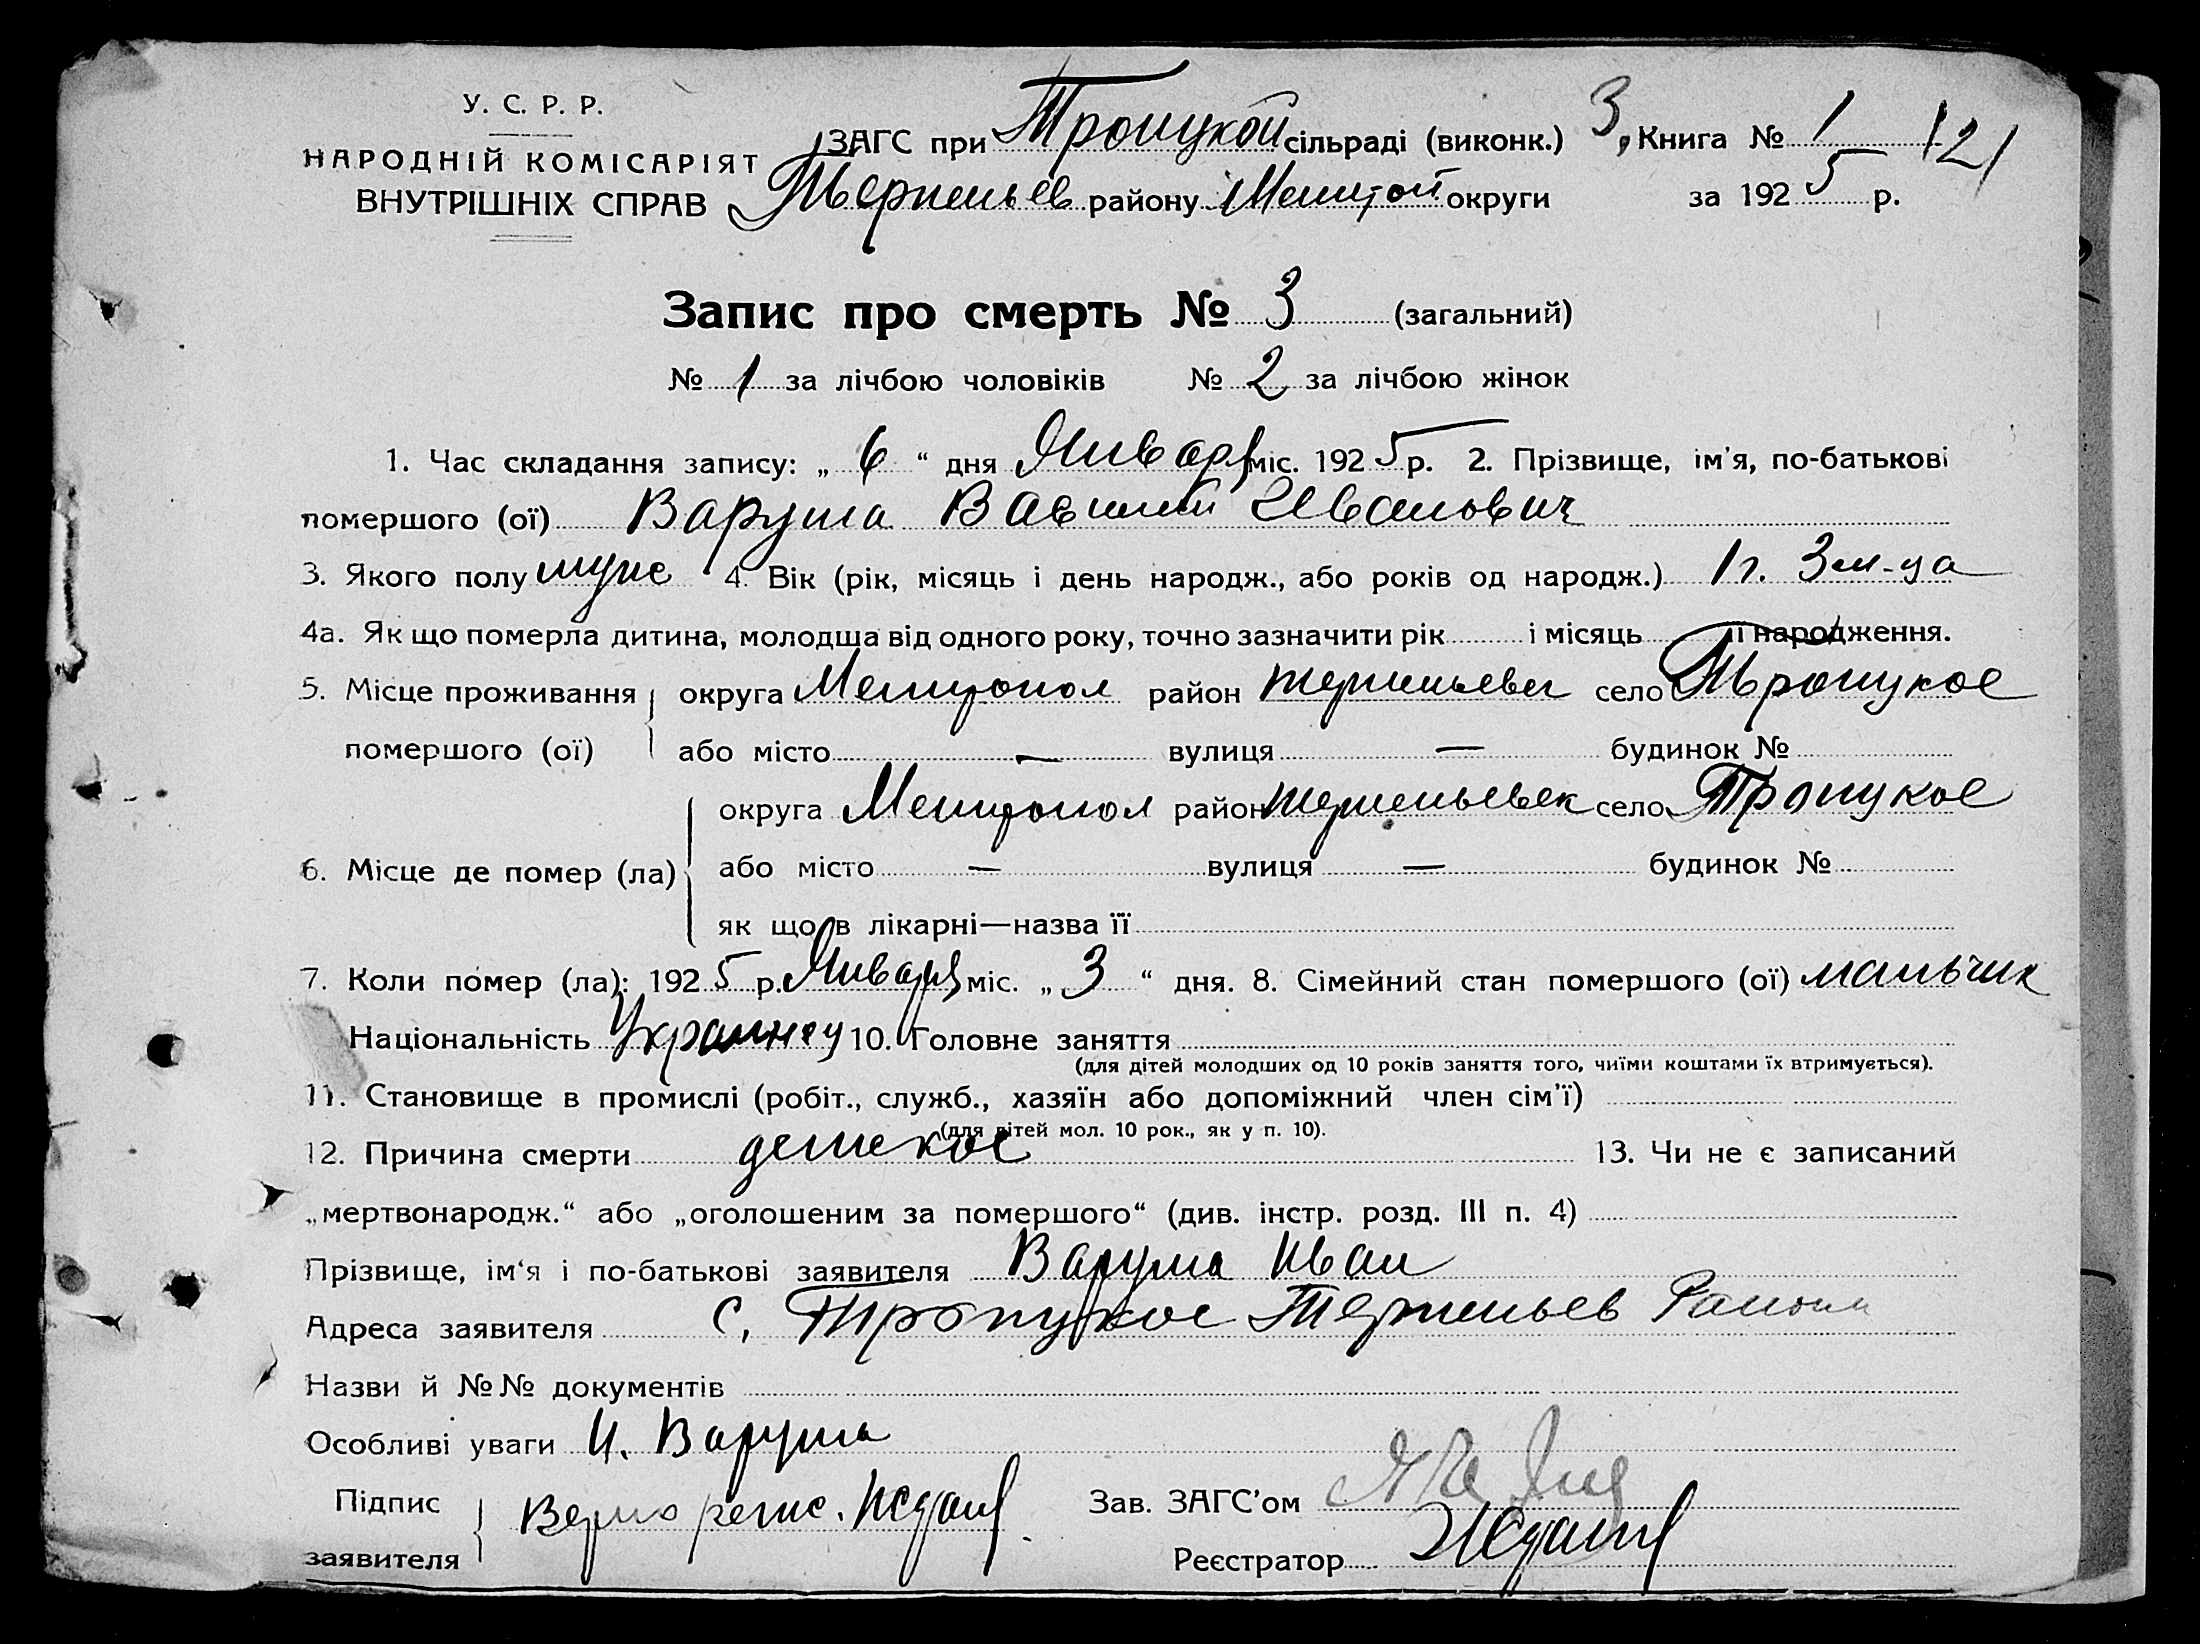 У. С. Р. Р.
НАРОДНІЙ КОМІСАРІЯТ
ВНУТРІШНІХ СПРАВ
ЗАГС при Троицкой сільраді (виконк.) 3, Книга № 1 121
Терпеньев району Мелитоп округи за 1925 р.
Запис про смерть № 3 (загальний)
№ 1 за лічбою чоловіків № 2 за лічбою жінок
1. Час складання запису: „ 6 “ дня Января міс. 1925 р. 2. Прізвище, ім'я, по-батькові
помершого (ої) Варуша Василий Иванович
3. Якого полу муже 4. Вік (рік, місяць і день народж., або років од народж.) 1 г. 3 м-ца
4а. Як що померла дитина, молодша від одного року, точно зазначити рік і місяць її народження.
5. Місце проживання округа Мелитопол район терпеньевск село Троицкое
помершого (ої) або місто — вулиця — будинок №
округа Мелитопол район терпеньевск село Троицкое
6. Місце де помер (ла) або місто — вулиця — будинок №
як що в лікарні—назва її
7. Коли помер (ла): 1925 р. Января міс. „ 3 “ дня. 8. Сімейний стан помершого (ої) мальчик
Національність Украинец 10. Головне заняття
(для дітей молодших од 10 років заняття того, чиїми коштами їх втримується).
11. Становище в промислі (робіт., служб., хазяїн або допоміжний член сім'ї)
(для дітей мол. 10 рок., як у п. 10).
12. Причина смерти детское 13. Чи не є записаний
„мертвонародж.“ або „оголошеним за помершого“ (див. інстр. розд. III п. 4)
Прізвище, ім'я і по-батькові заявителя Варуша Иван
Адреса заявителя с. Троицкое Терпеньев Района
Назви й №№ документів
Особливі уваги И. Варуша
Підпис заявителя Верно Зав. ЗАГС'ом
Реєстратор